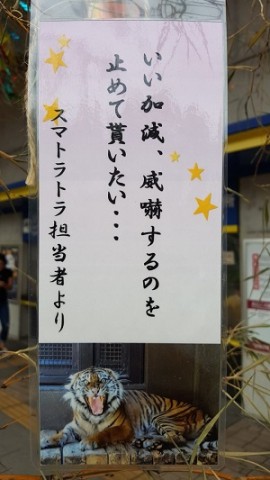 いい加減、威嚇するのを
止めて貰いたい・・・
スマトラトラ担当者より